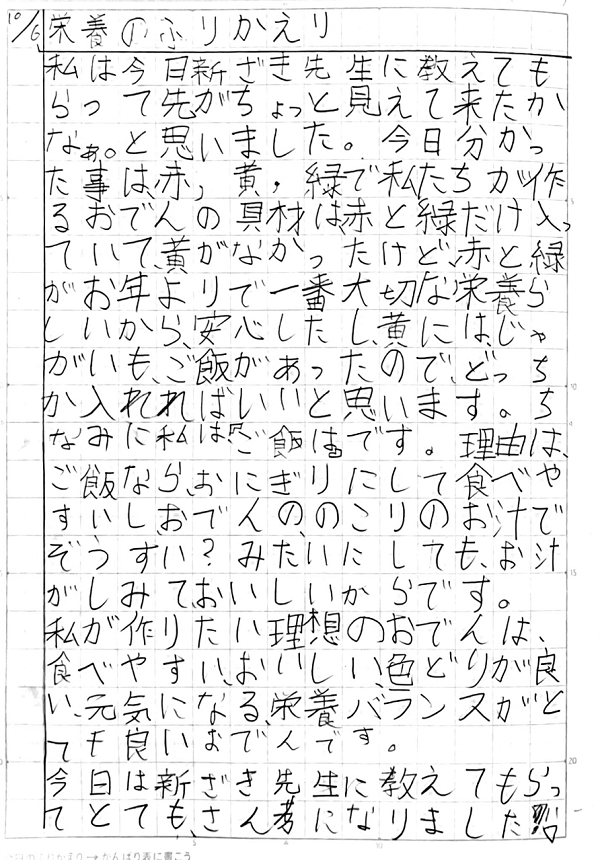 10/6 栄養のふりかえり
私は今日新ざき先生に教えても
らって先がちょっと見えて来たか
なぁ。と思いました。今日分かっ
た事は、赤、黄、緑で私たちが作
るおでんの具材は、赤と緑だけ入っ
ていて、黄がなかったけど、赤と緑
がお年よりで一番大切な栄養ら
しいから、安心したし、黄には、じゃ
がいも、ご飯があったので、どっち
か入れればいいと思います。ち
なみに私は、ご飯はです。理由は、
ご飯なら、おにぎりにして食べや
すいし、おでんの、のこりのお汁で
ぞうすい?みたいにしても、お汁
がしみて、おいしいからです。
私が作りたい理想のおでんは、
食べやすい、おいしい、色どりが良
い、元気になる、栄養バランスがと
ても良いおでんです。
今日は新ざき先生に教えてもらっ
てとても、さん考になりました!!!
→がんばり表に書こう